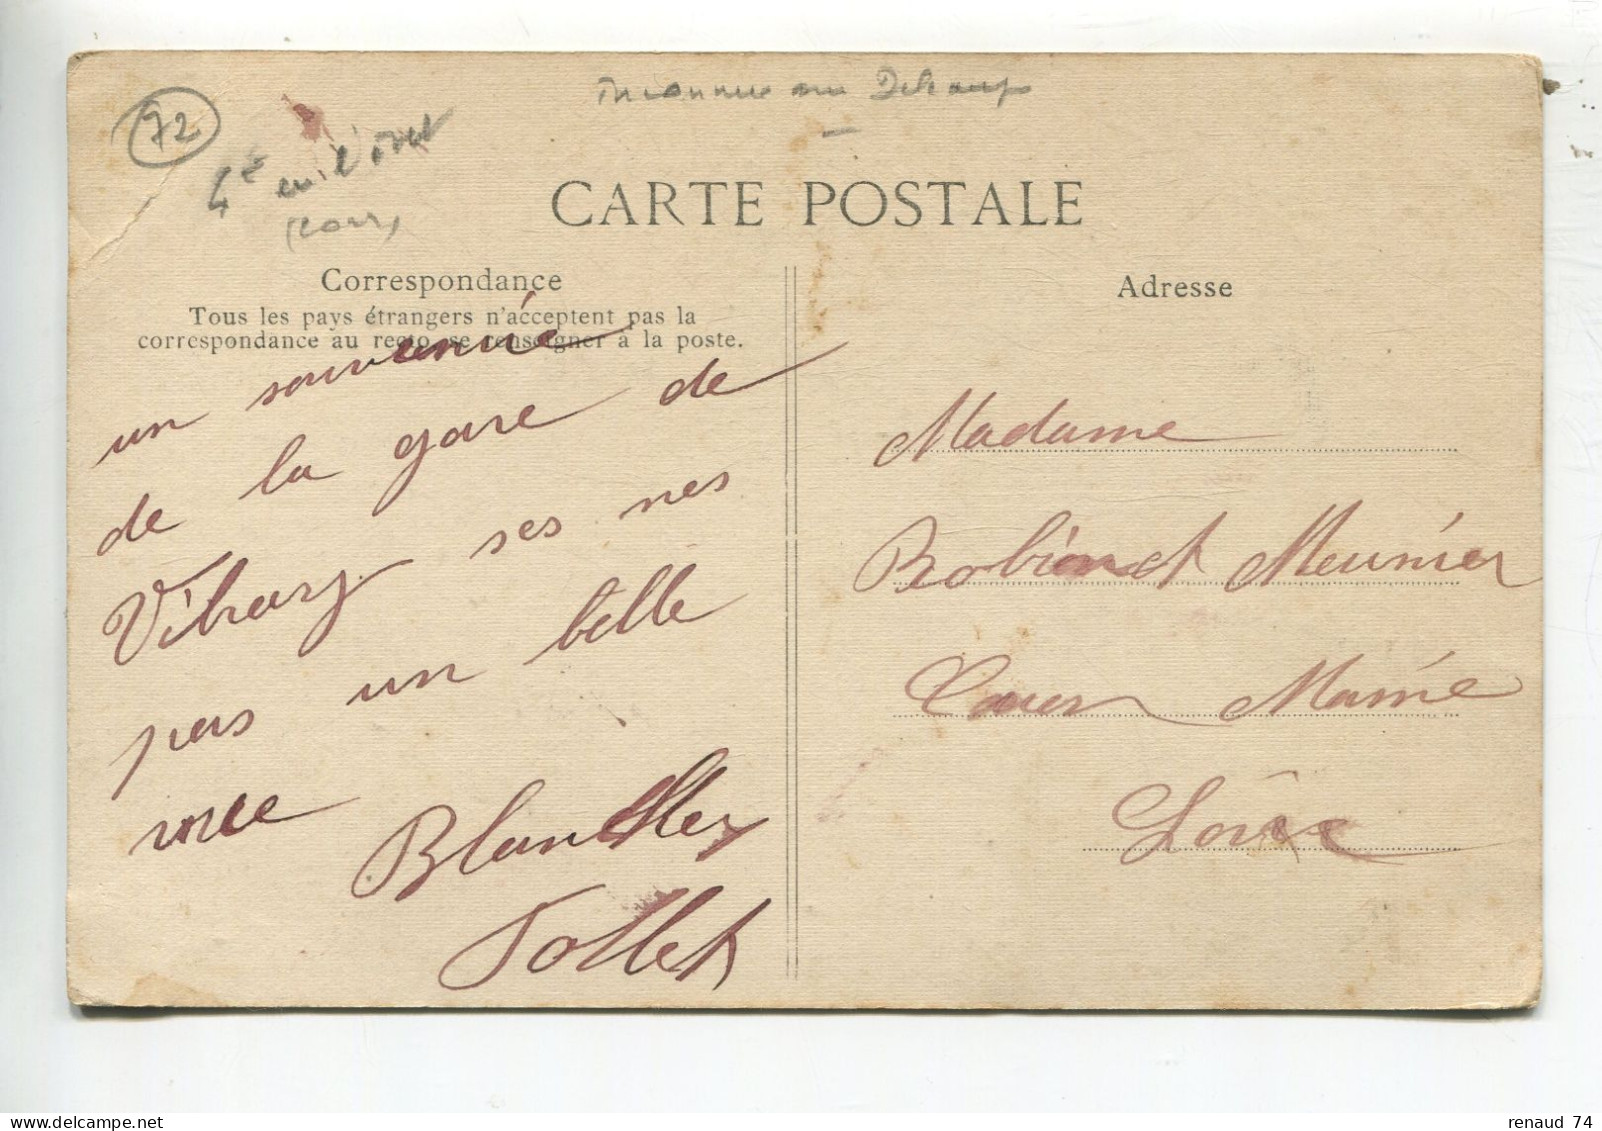 72
inconnue sur Delcamp
4e en
CARTE POSTALE
Correspondance
Tous les pays étrangers n'acceptent pas la
correspondance au recto, se renseigner à la poste.
un souvenie
de la gare de
Vibray ses nes
pas un belle
vue
Blanche
Tollet
Adresse
Madame
Robinet Meunier
Mamé
Loire
renaud 74